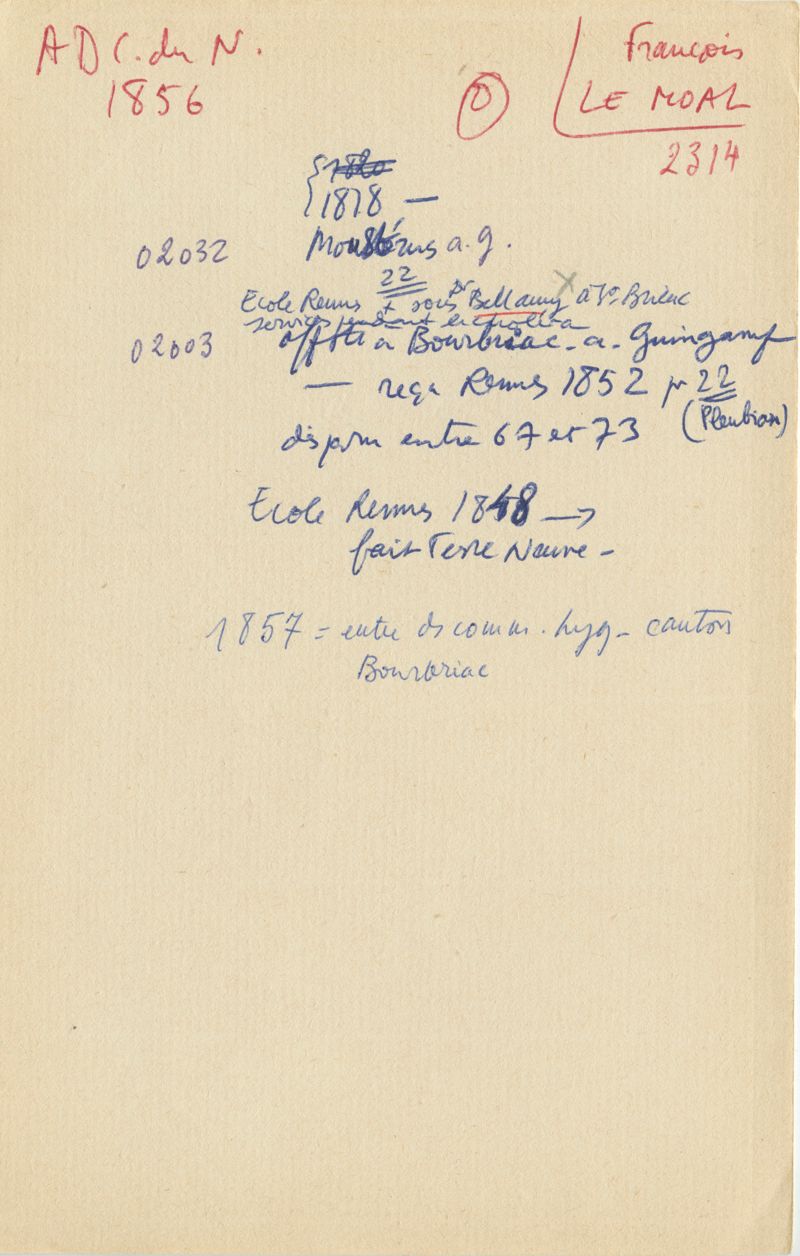 A D C. du N.
1856
O
François
LE MOAL
2314
1820
1818 —
02032 Moustérus a. G.
22
Ecole Rennes + sous Dr Bellamy à St Brieuc
services pendant le choléra
02003 off Sté a Bourbriac - a - Guingamp
— reçu Rennes 1852 pr 22
(Pleubian)
disparu entre 67 et 73
Ecole Rennes 1848 →
fait Terre Neuve -
1857 = entre ds comm. hyg - cantons
Bourbriac